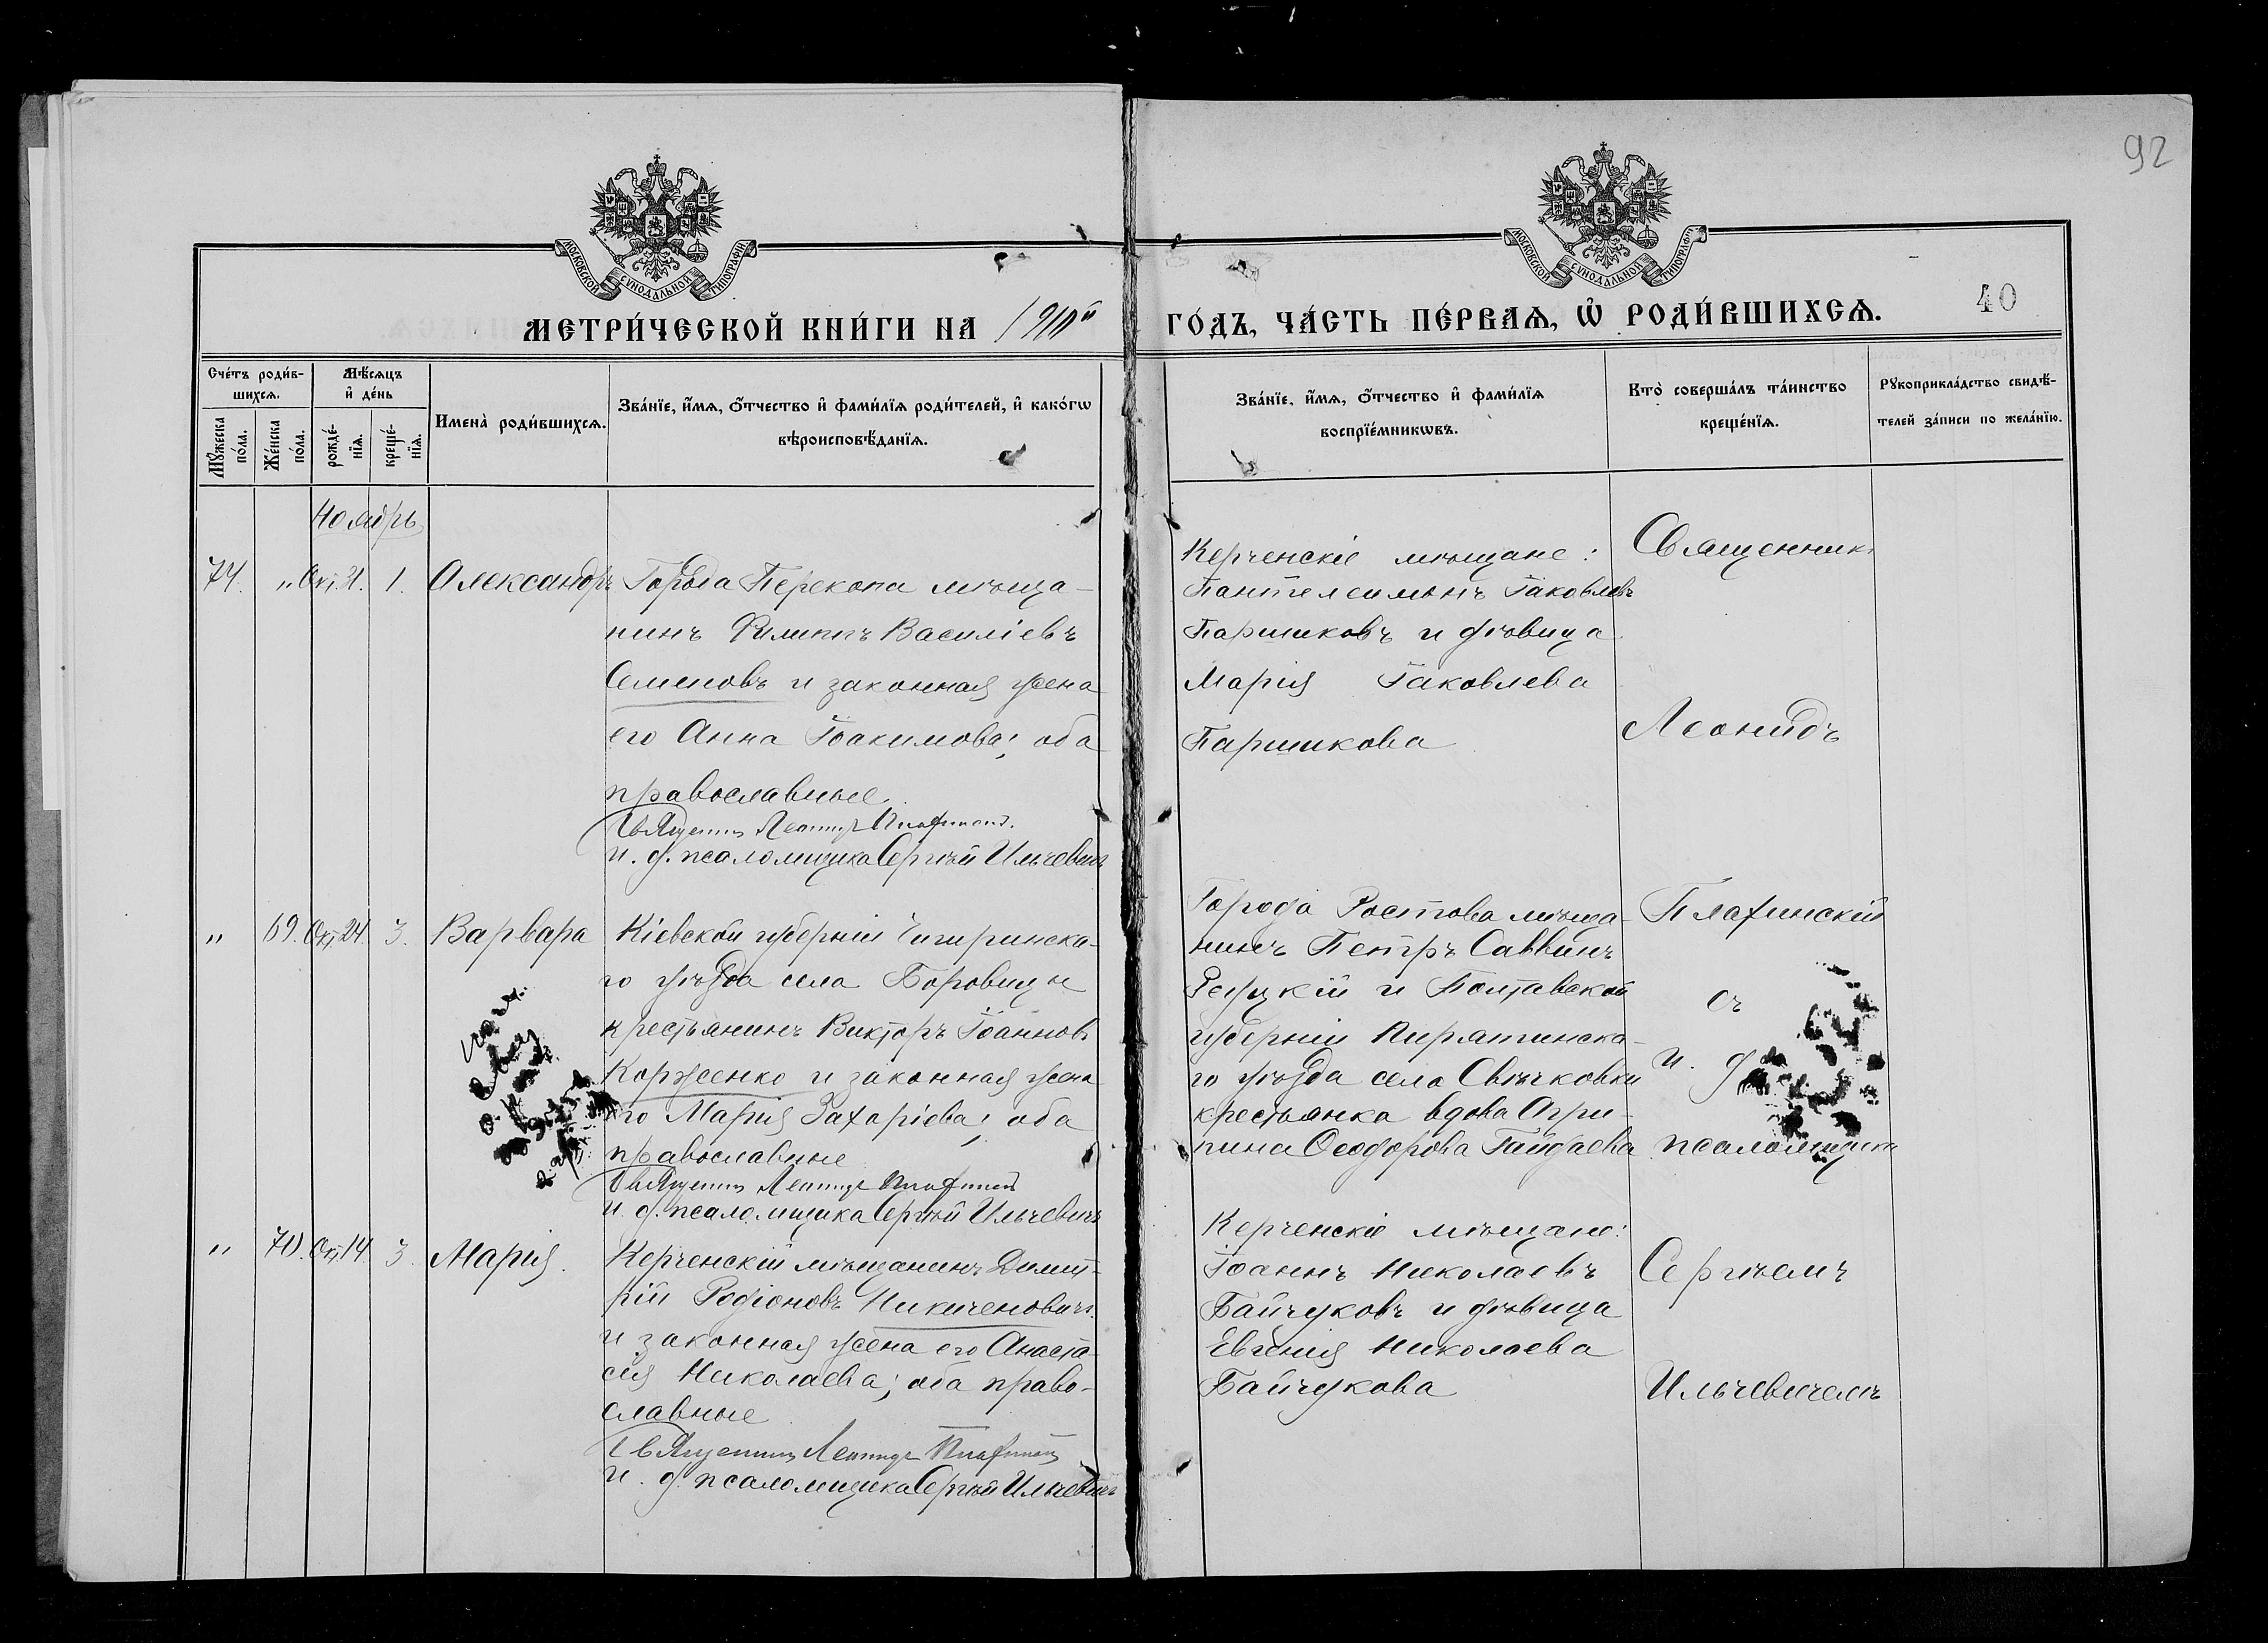 92
МОСКОВСКОЙ СѴНОДАЛЬНОЙ ТИПОГРАФІИ
МОСКОВСКОЙ СѴНОДАЛЬНОЙ ТИПОГРАФІИ
МЕТРИ́ЧЕСКОЙ КНИ́ГИ НА 1910й
ГО́ДЪ, ЧА́СТЬ ПЕ́РВАѦ, Ѡ҆ РОДИ́ВШИХСѦ.
40
Сче́тъ роди́в-
шихсѧ.
Мꙋ́жеска по́ла.
Же́нска по́ла.
Мѣ́сѧцъ и҆ де́нь
рожде́-нїѧ.
креще́-нїѧ.
Имена̀ роди́вшихсѧ.
Зва́нїе, и҆́мѧ, ѻ҆́тчество и҆ фами́лїѧ роди́телей, и҆ како́гѡ
вѣроисповѣ́данїѧ.
Зва́нїе, и҆́мѧ, ѻ҆́тчество и҆ фами́лїѧ
воспрїе́мникѡвъ.
Кто̀ соверша́лъ та́инство
креще́нїѧ.
Рꙋкоприкла́дство свидѣ́-
телей за́писи по жела́нїю.
Ноябрь
74. " Окт. 21. 1. Александръ
Города Перекопа мѣща-
нинъ Филиппъ Василіевъ
Семеновъ и законная жена
его Анна Іоакимова; оба
православные
Священникъ Леонидъ
и. д. псаломщика Сергѣй Ильчевичъ
Керченскіе мѣщане:
Пантелеимонъ Іаковлевъ
Паршиковъ и дѣвица
Марія Іаковлева
Паршикова
Священникъ
Леонидъ
" 69. Окт. 24. 3. Варвара
Кіевской губерніи Чигиринска-
го уѣзда села Боровицы
крестьянинъ Викторъ Іоанновъ
Корженко и законная жена
его Марія Захаріева; оба
православные
Священникъ Леонидъ
и. д. псаломщика Сергѣй Ильчевичъ
Города Ростова мѣща-
нинъ Петръ Саввинъ
и Полтавской
губерніи Пирятинска-
го уѣзда села Свѣчковки
крестьянка вдова Агри-
пина Ѳеодорова Гайдаева
съ
и. д.
псаломщика
" 70. Окт. 14. 3. Марія.
Керченскій мѣщанинъ Димит-
рій Родіоновъ
и законная жена его Анаста-
сія Николаева; оба право-
славные
Священникъ Леонидъ
и. д. псаломщика Сергѣй Ильчевичъ
Керченскіе мѣщане:
Іоаннъ Николаевъ
Байчуковъ и дѣвица
Евгенія Николаева
Байчукова
Сергѣемъ
Ильчевичемъ